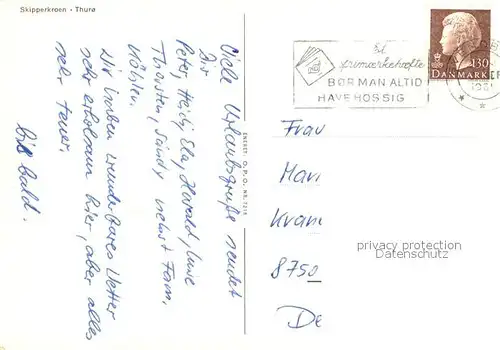 Skipperkroen - Thurø
Viele Urlaubsgrüße sendet
Dir
Peter, Heidi, Ela, Harald, Luise
Thorsten, Sandy nebst Fam.
Wir haben wunderbares Wetter
sehr erholsam hier, aber alles
sehr teuer.
Bis bald.
ENERET. O. P. O. NR.
Et
frimærkehæfte
BØR MAN ALTID
HAVE HOS SIG
130
DANMARK
Frau
Kram
8750
De
privacy protection
Datenschutz